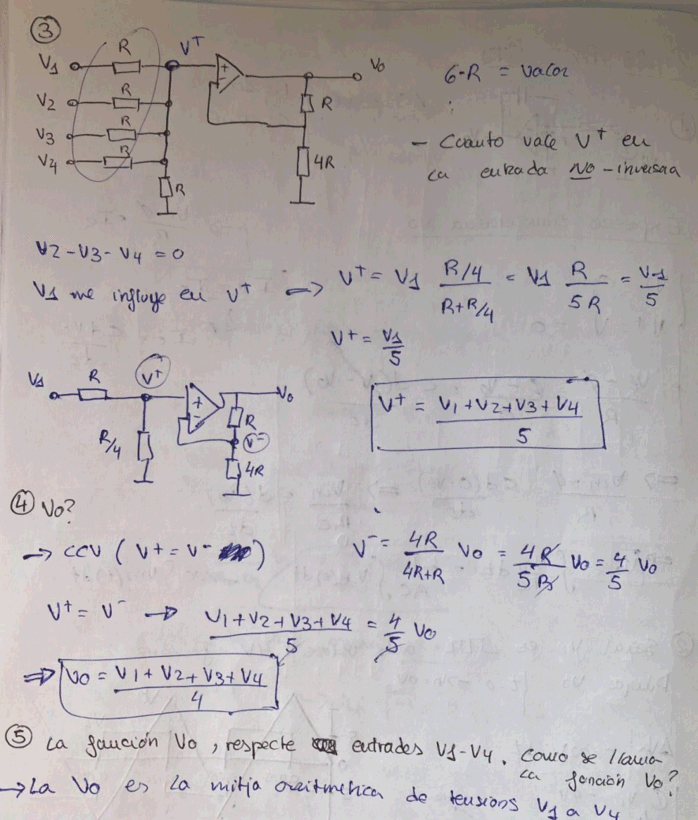 ③
V1 R V+ + - Vo
V2 R R
V3 R
V4 R 4R
R
6-R = valor
- Cuanto vale V+ en
la entrada NO-inversora
V2-V3-V4 = 0
V1 me influye en V+ => V+ = V1 (R/4)/(R+R/4) = V1 R/5R = V1/5
V+ = V1/5
V1 R V+ + - Vo
R/4 R V-
4R
V+ = (V1+V2+V3+V4)/5
④ Vo?
→ CCV (V+ = V-)
V- = 4R/(4R+R) Vo = 4R/5R Vo = 4/5 Vo
V+ = V- → (V1+V2+V3+V4)/5 = 4/5 Vo
⇒ Vo = (V1+V2+V3+V4)/4
⑤ La función Vo, respecte entrades V1-V4. Como se llama
la función Vo?
→ La Vo es la mitja aritmetica de tensions V1 a V4